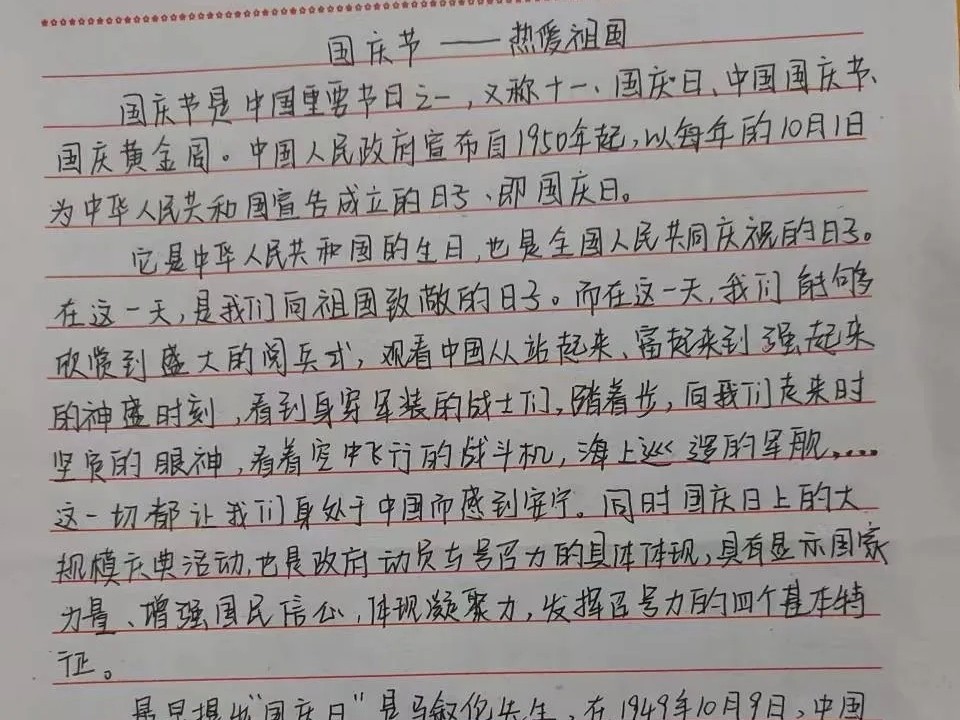 国庆节——热爱祖国
国庆节是中国重要节日之一,又称十一、国庆日、中国国庆节、
国庆黄金周。中国人民政府宣布自1950年起,以每年的10月1日
为中华人民共和国宣告成立的日子、即国庆日。
它是中华人民共和国的生日,也是全国人民共同庆祝的日子。
在这一天,是我们向祖国致敬的日子。而在这一天,我们能够
欣赏到盛大的阅兵式,观看中国从站起来、富起来到强起来
的神盛时刻,看到身穿军装的战士们,踏着步,向我们走来时
坚定的眼神,看着空中飞行的战斗机,海上巡逻的军舰,....
这一切都让我们身处于中国而感到安宁。同时国庆日上的大
规模庆典活动,也是政府动员与号召力的具体体现,具有显示国家
力量、增强国民信心,体现凝聚力,发挥召号力的四个基本特
征。
最早提出"国庆日"是马叙伦先生,在1949年10月9日,中国